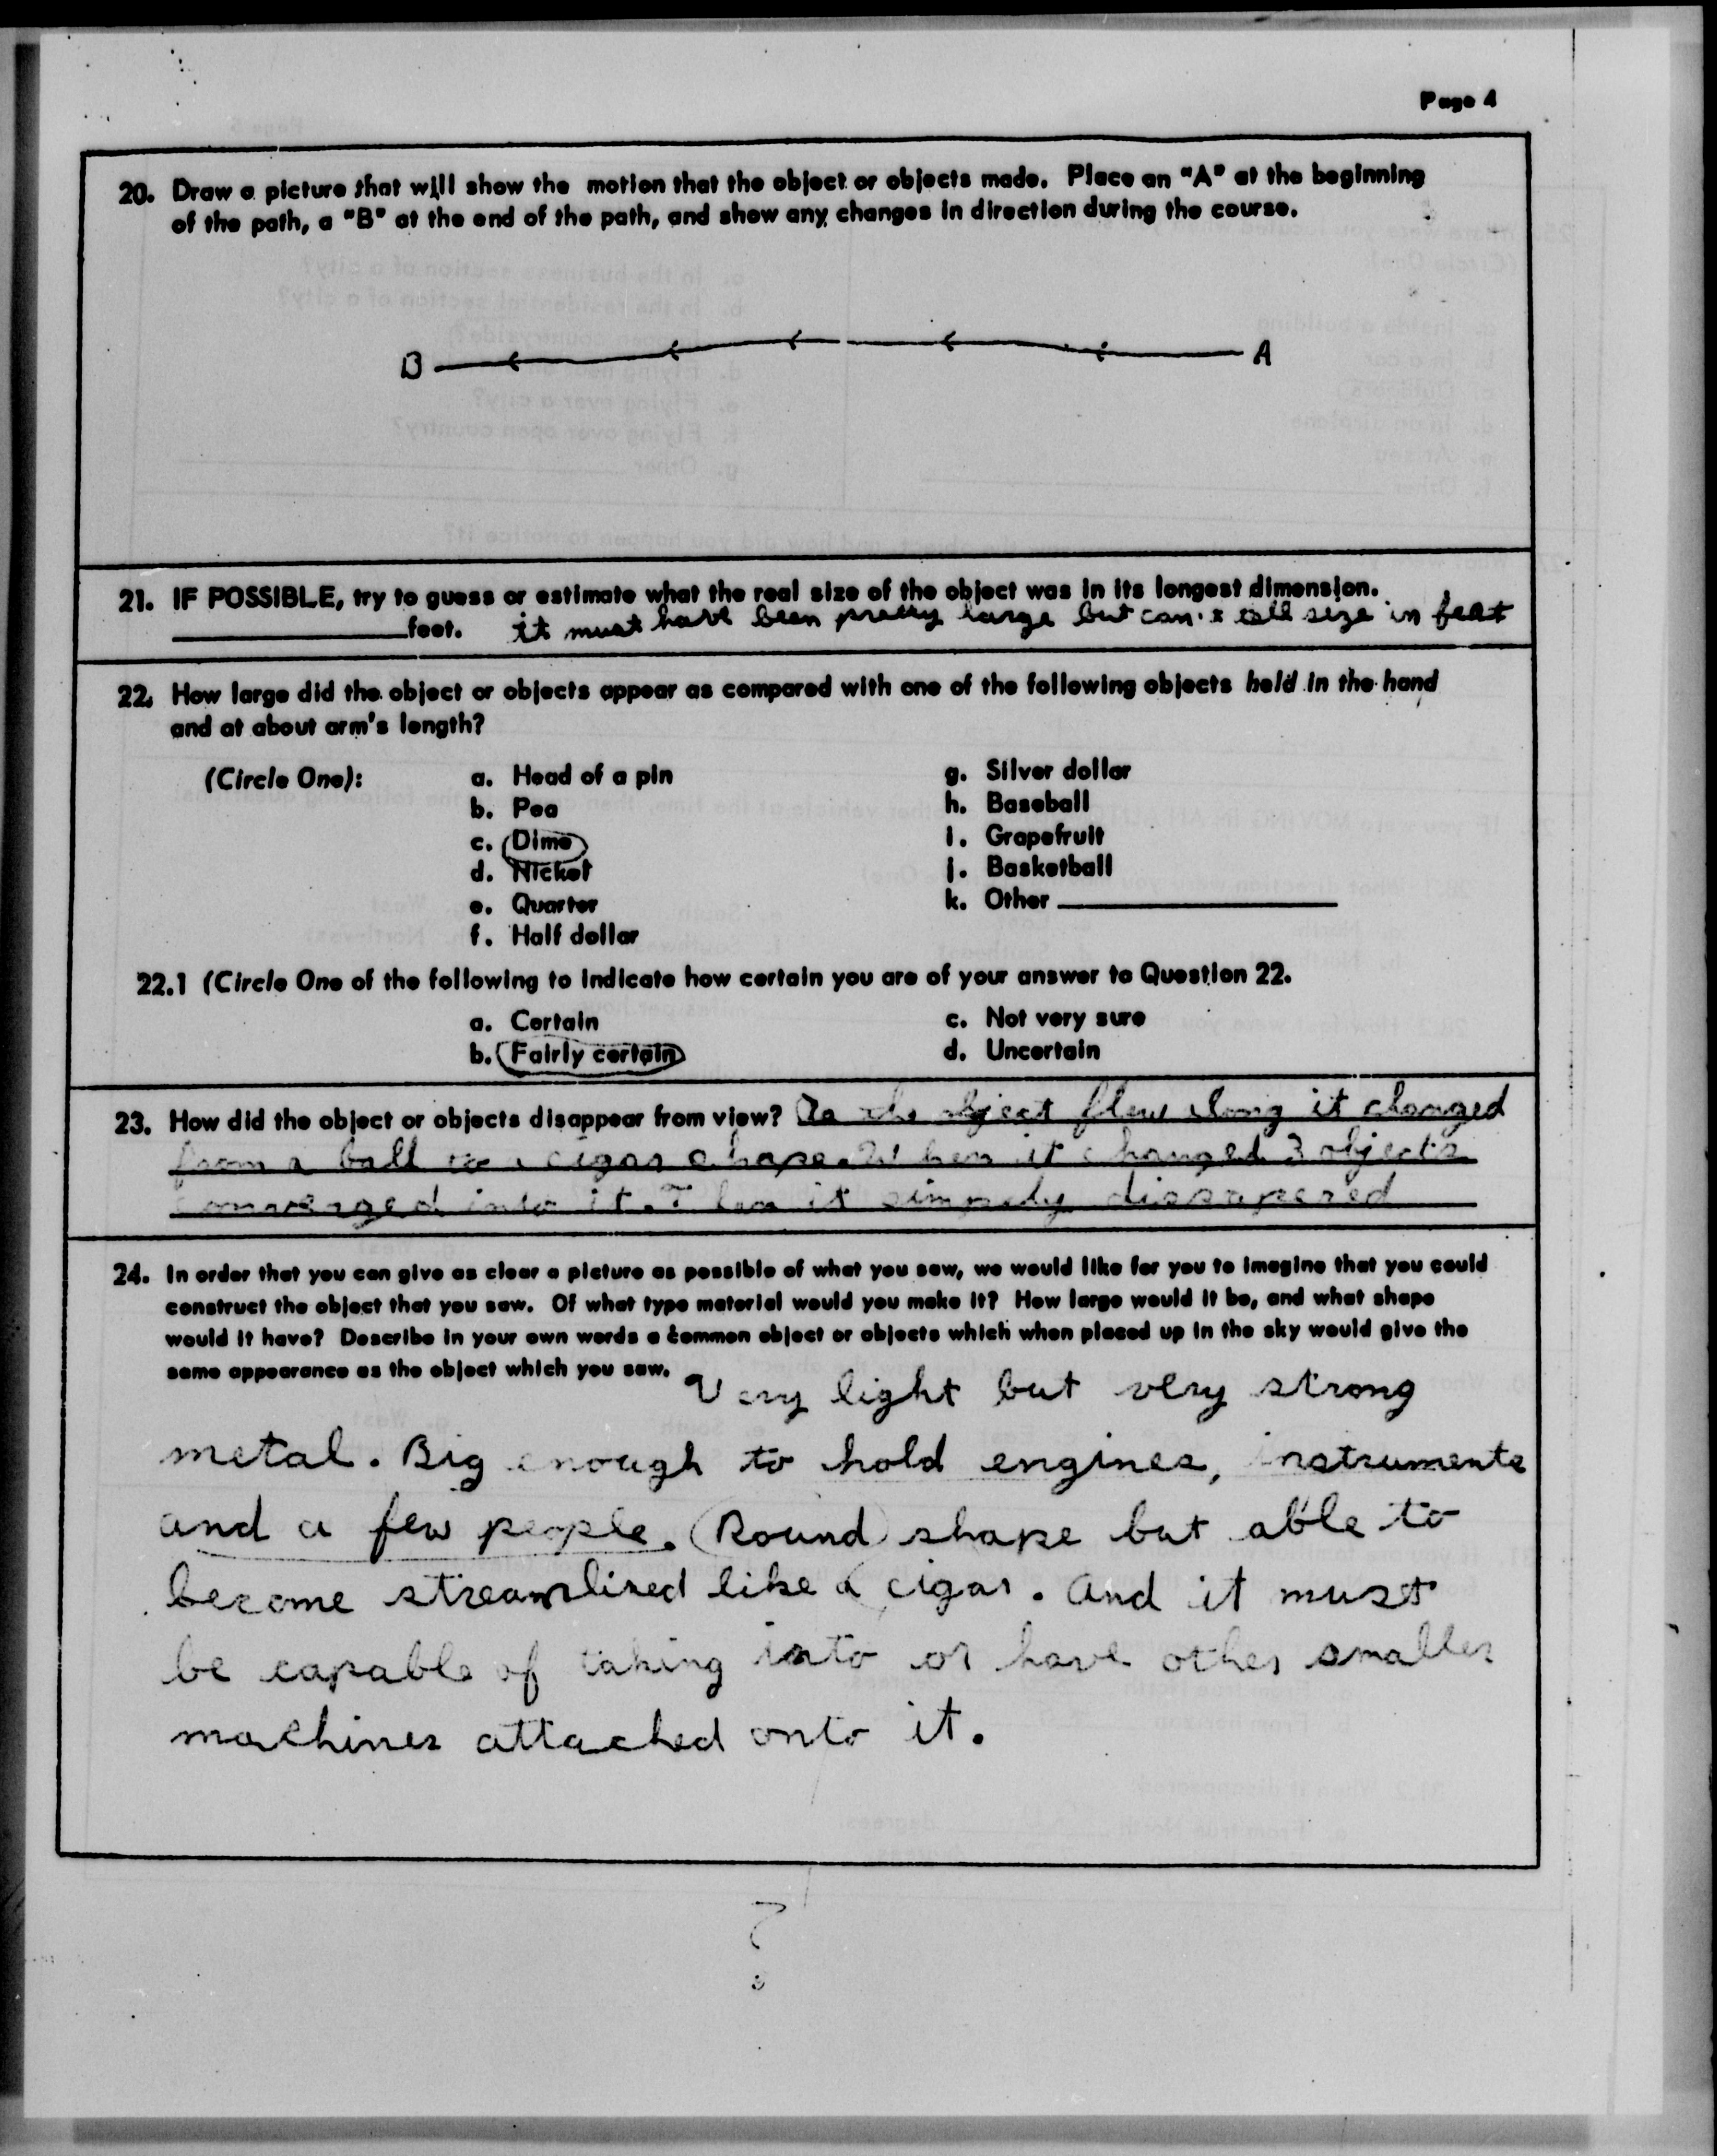 Page 4
20. Draw a picture that will show the motion that the object or objects made. Place an "A" at the beginning
of the path, a "B" at the end of the path, and show any changes in direction during the course.
B A
21. IF POSSIBLE, try to guess or estimate what the real size of the object was in its longest dimension.
feet. it must have been pretty large but can't tell size in feet
22. How large did the object or objects appear as compared with one of the following objects held in the hand
and at about arm's length?
(Circle One): a. Head of a pin g. Silver dollar
b. Pea h. Baseball
c. Dime i. Grapefruit
d. Nickel j. Basketball
e. Quarter k. Other
f. Half dollar
22.1 (Circle One of the following to indicate how certain you are of your answer to Question 22.
a. Certain c. Not very sure
b. Fairly certain d. Uncertain
23. How did the object or objects disappear from view? As the object flew along it changed
from a ball to a cigar shape. When it changed 3 objects
converged into it. Then it simpely dissapered
24. In order that you can give as clear a picture as possible of what you saw, we would like for you to imagine that you could
construct the object that you saw. Of what type material would you make it? How large would it be, and what shape
would it have? Describe in your own words a common object or objects which when placed up in the sky would give the
same appearance as the object which you saw. Very light but very strong
metal. Big enough to hold engines, instruments
and a few people. (Round) shape but able to
become streamlined like a cigar. And it must
be capable of taking into or have other smaller
machines attached onto it.
?